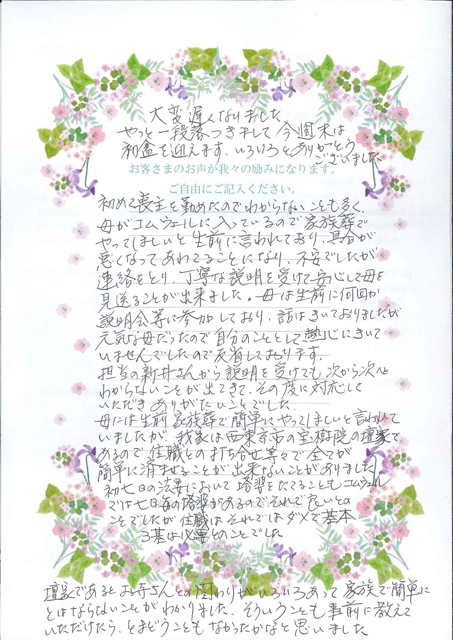 大変遅くなりました
やっと一段落つきまして今週末は
初盆を迎えます。いろいろとありがとう
ございました
お客さまのお声が我々の励みになります。
ご自由にご記入ください。
初めて喪主を勤めたのでわからないことも多く
母がコムウェルに入っているので家族葬で
やってほしいと生前に言われており、具合が
悪くなってあわてることになり、不安でしたが
連絡をとり、丁寧な説明を受けて安心して母を
見送ることが出来ました。母は生前に何回か
説明会等に参加しており、話はきいておりましたが
元気な母だったので自分のこととして熱心にきいて
いませんでしたので反省しております。
担当の新井さんから説明を受けても次から次へと
わからないことが出てきて、その度に対応して
いただきありがたいことでした。
母には生前家族葬で簡単にやってほしいと言われて
いましたが、我家は西東京市の宝樹院の檀家で
あるので住職との打ち合せ等々で全てが
簡単に済ませることが出来ないことがありました
初七日の法要において塔婆をたてることもコムウェル
では七日毎の塔婆があるのでそれで良いとの
ことでしたが住職はそれではダメで基本
3基は必要とのことでした
檀家であるとお寺さんとの関わりがいろいろあって家族で簡単に
とはならないことがわかりました。そういうことも事前に教えて
いただけたら、とまどうこともなかったかなと思いました。